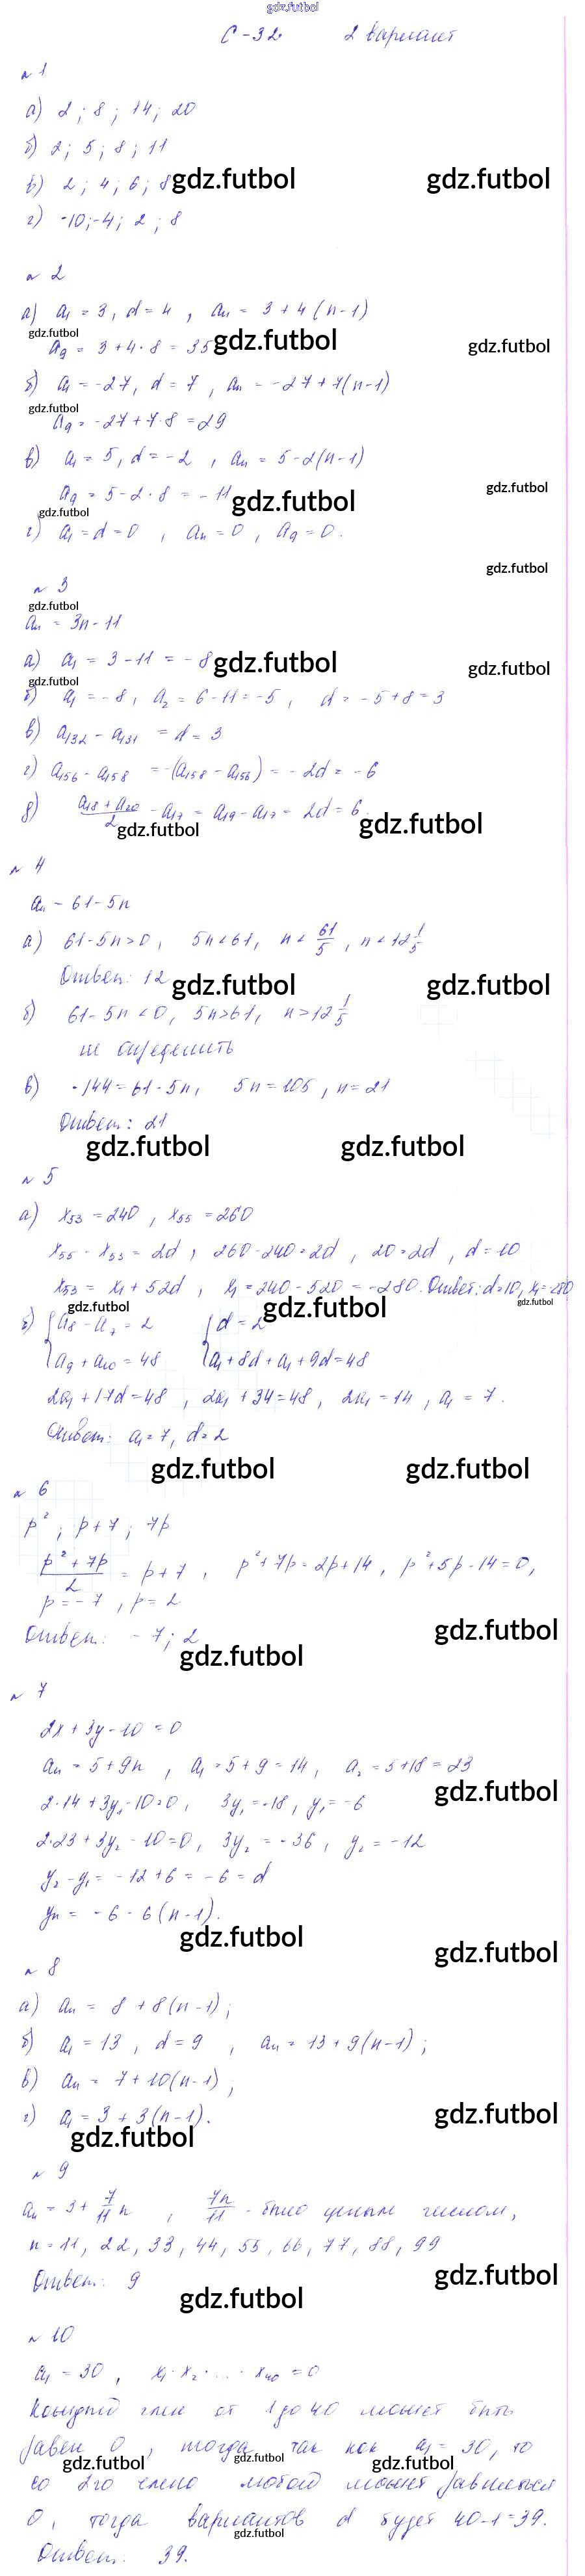 gdz.futbol
С-32 2 вариант
№1
а) 2; 8; 14; 20
б) 2; 5; 8; 11
в) 2; 4; 6; 8 gdz.futbol gdz.futbol
г) -10; -4; 2; 8
№2
а) a₁ = 3, d = 4, aₙ = 3 + 4(n-1)
gdz.futbol
a₉ = 3 + 4·8 = 35 gdz.futbol gdz.futbol
б) a₁ = -27, d = 7, aₙ = -27 + 7(n-1)
gdz.futbol
a₉ = -27 + 7·8 = 29
в) a₁ = 5, d = -2, aₙ = 5 - 2(n-1)
a₉ = 5 - 2·8 = -11 gdz.futbol gdz.futbol
gdz.futbol
г) a₁ = d = 0, aₙ = 0, a₉ = 0.
gdz.futbol
№3
gdz.futbol
aₙ = 3n - 11
а) a₁ = 3 - 11 = -8 gdz.futbol gdz.futbol
gdz.futbol
б) a₁ = -8, a₂ = 6 - 11 = -5, d = -5 + 8 = 3
в) a₁₃₂ - a₁₃₁ = d = 3
г) a₁₅₆ - a₁₅₈ = -(a₁₅₈ - a₁₅₆) = -2d = -6
д) (a₁₈ + a₂₀)/2 - a₁₇ = a₁₉ - a₁₇ = 2d = 6.
gdz.futbol gdz.futbol
№4
aₙ = 61 - 5n
а) 61 - 5n > 0, 5n < 61, n < 61/5, n < 12 1/5
Ответ: 12 gdz.futbol gdz.futbol
б) 61 - 5n < 0, 5n > 61, n > 12 1/5
не определить
в) -144 = 61 - 5n, 5n = 105, n = 21
Ответ: 21
gdz.futbol gdz.futbol
№5
а) x₅₃ = 240, x₅₅ = 260
x₅₅ - x₅₃ = 2d, 260 - 240 = 2d, 20 = 2d, d = 10
x₅₃ = x₁ + 52d, x₁ = 240 - 520 = -280. Ответ: d = 10, x₁ = -280
gdz.futbol gdz.futbol gdz.futbol
б) { a₈ - a₇ = 2 { d = 2
a₉ + a₁₀ = 48 a₁ + 8d + a₁ + 9d = 48
2a₁ + 17d = 48, 2a₁ + 34 = 48, 2a₁ = 14, a₁ = 7.
Ответ: a₁ = 7, d = 2
gdz.futbol gdz.futbol
№6
p²; p + 7; 7p
(p² + 7p)/2 = p + 7, p² + 7p = 2p + 14, p² + 5p - 14 = 0,
p = -7, p = 2
Ответ: -7; 2 gdz.futbol
gdz.futbol
№7
2x + 3y - 10 = 0
aₙ = 5 + 9n, a₁ = 5 + 9 = 14, a₂ = 5 + 18 = 23
gdz.futbol
2·14 + 3y₁ - 10 = 0, 3y₁ = -18, y₁ = -6
2·23 + 3y₂ - 10 = 0, 3y₂ = -36, y₂ = -12
y₂ - y₁ = -12 + 6 = -6 = d
yₙ = -6 - 6(n-1).
gdz.futbol gdz.futbol
№8
а) aₙ = 8 + 8(n-1);
б) a₁ = 13, d = 9, aₙ = 13 + 9(n-1);
в) aₙ = 7 + 10(n-1);
г) a₁ = 3 + 3(n-1). gdz.futbol
gdz.futbol
№9
aₙ = 3 + 7/11 n, 7n/11 - было целым числом,
n = 11, 22, 33, 44, 55, 66, 77, 88, 99
Ответ: 9 gdz.futbol
gdz.futbol
№10
a₁ = 30, x₁·x₂·...·x₄₀ = 0
Каждый член от 1 до 40 может быть
равен 0, тогда так как a₁ = 30, то
gdz.futbol gdz.futbol gdz.futbol
со 2го члено любой может равняться
0, тогда вариантов d будет 40-1=39.
gdz.futbol
Ответ: 39.